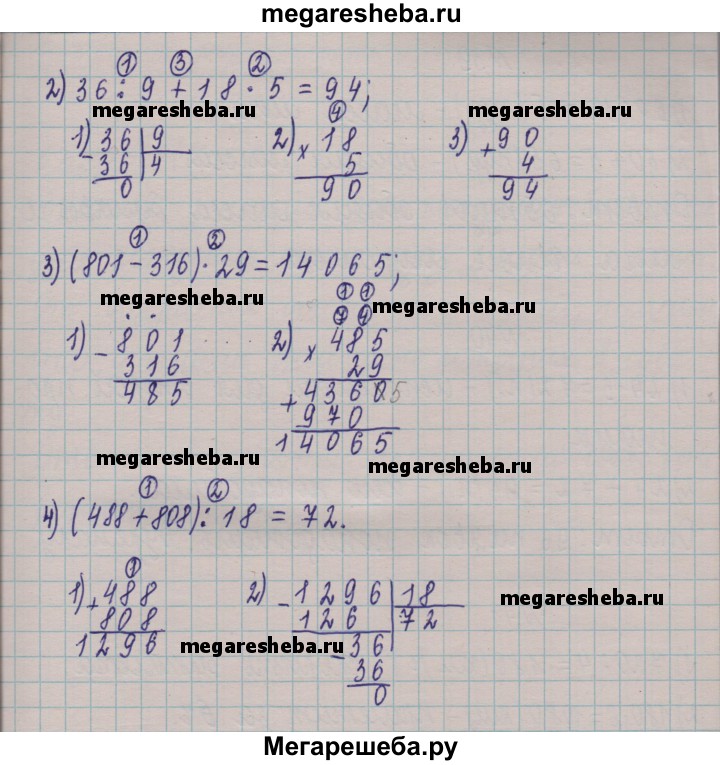 megaresheba.ru
2) 36 : 9 + 18 · 5 = 94;
① ③ ②
megaresheba.ru megaresheba.ru
1) 36 | 9
- 36 | 4
0
2) × 18
④
5
90
3) + 90
4
94
3) (801 - 316) · 29 = 14065;
① ②
megaresheba.ru megaresheba.ru
1) - 801
316
485
2) × 485
① ①
⑦ ④
29
+ 4365
970
14065
megaresheba.ru megaresheba.ru
4) (488 + 808) : 18 = 72.
① ②
1) + 488
①
808
1296
2) - 1296 | 18
126 | 72
- 36
36
0
megaresheba.ru
megaresheba.ru
Мегарешеба.ру